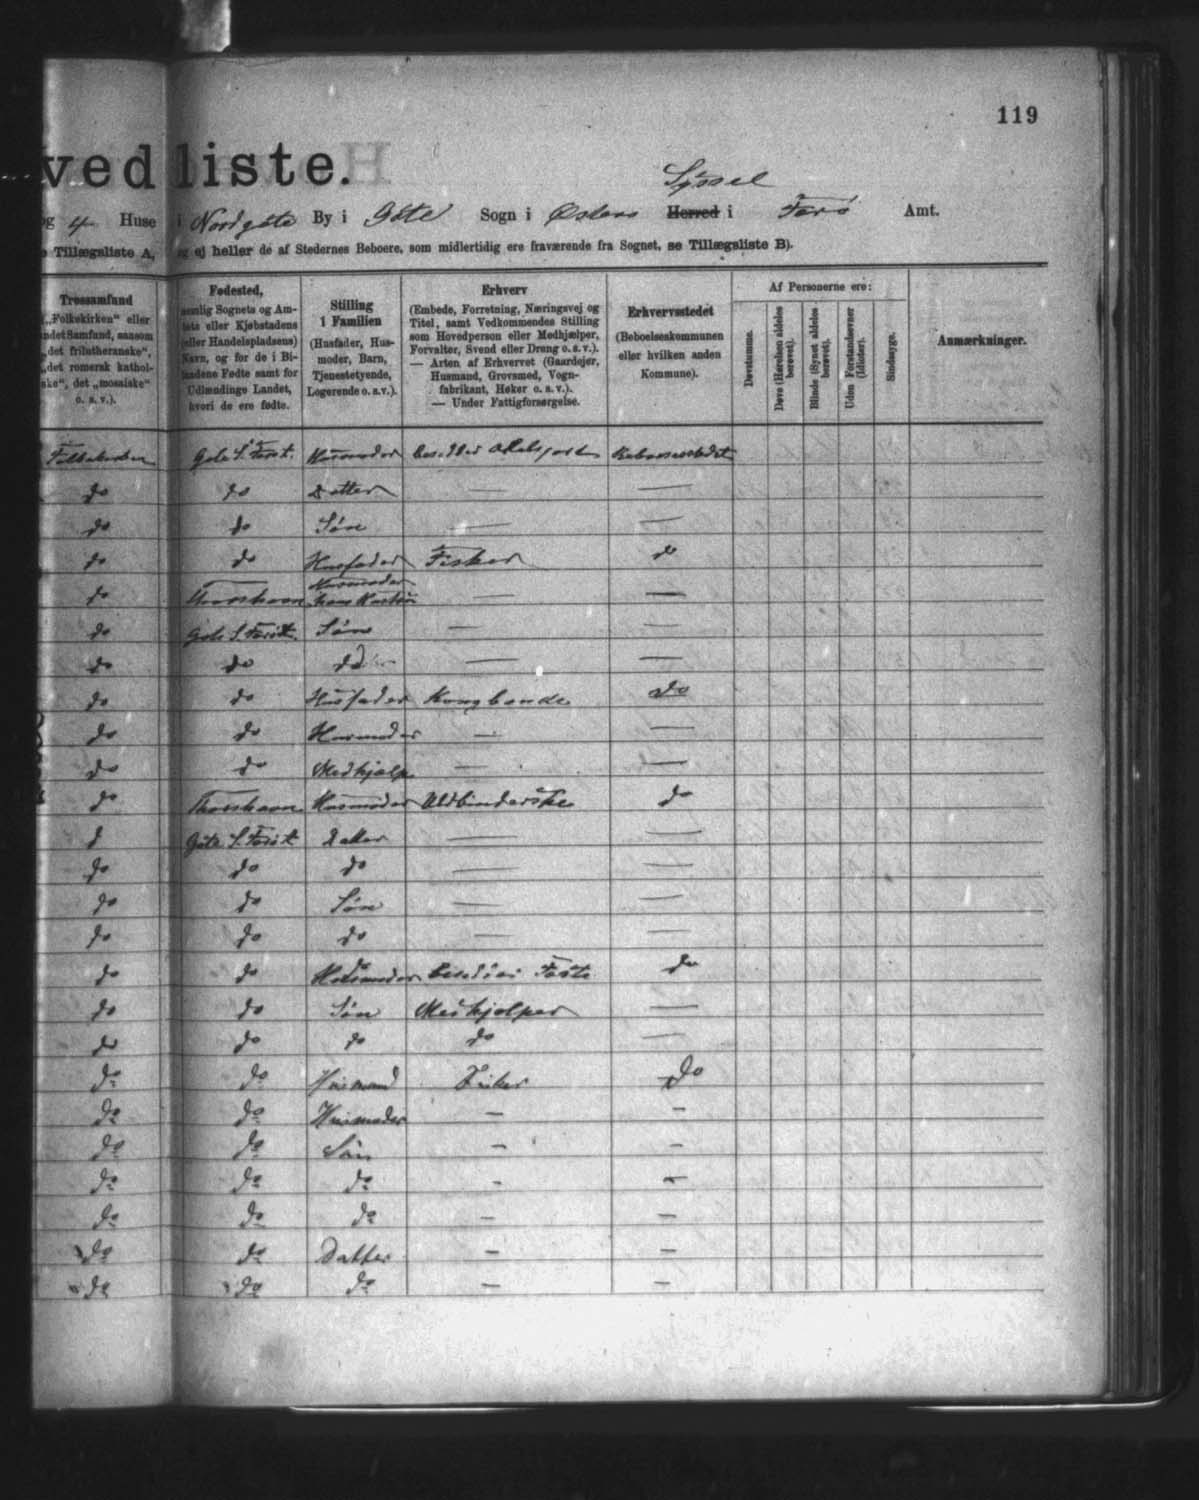 119
vedliste.
Syssel
og 4 Huse i Nordgøte By i Gøte Sogn i Østerø Herred i Færø Amt.
Tillægsliste A, og ej heller de af Stedernes Beboere, som midlertidig ere fraværende fra Sognet, se Tillægsliste B).
Trossamfund
(„Folkekirken“ eller
andet Samfund, saasom
„det frilutheranske“,
„det romersk kathol-
ske“, det „mosaiske“
o. s. v.).
Fødested,
nemlig Sognets og Am-
tets eller Kjøbstadens
(eller Handelspladsens)
Navn, og for de i Bi-
landene Fødte samt for
Udlændinge Landet,
hvori de ere fødte.
Stilling
i Familien
(Husfader, Hus-
moder, Barn,
Tjenestetyende,
Logerende o. s. v.).
Erhverv
(Embede, Forretning, Næringsvej og
Titel, samt Vedkommendes Stilling
som Hovedperson eller Medhjælper,
Forvalter, Svend eller Dreng o. s. v.).
— Arten af Erhvervet (Gaardejer,
Husmand, Grovsmed, Vogn-
fabrikant, Høker o. s. v.).
— Under Fattigforsørgelse.
Erhvervsstedet
(Beboelseskommunen
eller hvilken anden
Kommune).
Af Personerne ere:
Døvstumme.
Døve (Hørelsen aldeles
berøvet).
Blinde (Synet aldeles
berøvet).
Uden Forstandsevner
(Idioter).
Sindssyge.
Anmærkninger.
Folkekirken Gøte S. Færøt. Husmoder
do do Datter — —
do do Søn — —
do do Husfader Fisker do
Husmoder
do Thorshavn hans Kone — —
do Gøte S. Færøt. Søn — —
do do do — —
do do Husfader Kongbonde do
do do Husmoder — —
do do Medhjælp — —
do Thorshavn Husmoder Uldbinderske do
d Gøte S. Færøt Datter — —
do do do — —
do do Søn — —
do do do — —
do do Husmoder Fæste do
do do Søn Medhjælper —
do do do do —
do do Husmand Fisker do
do do Husmoder — —
do do Søn — —
do do do — —
do do do — —
do do Datter — —
do do do — —